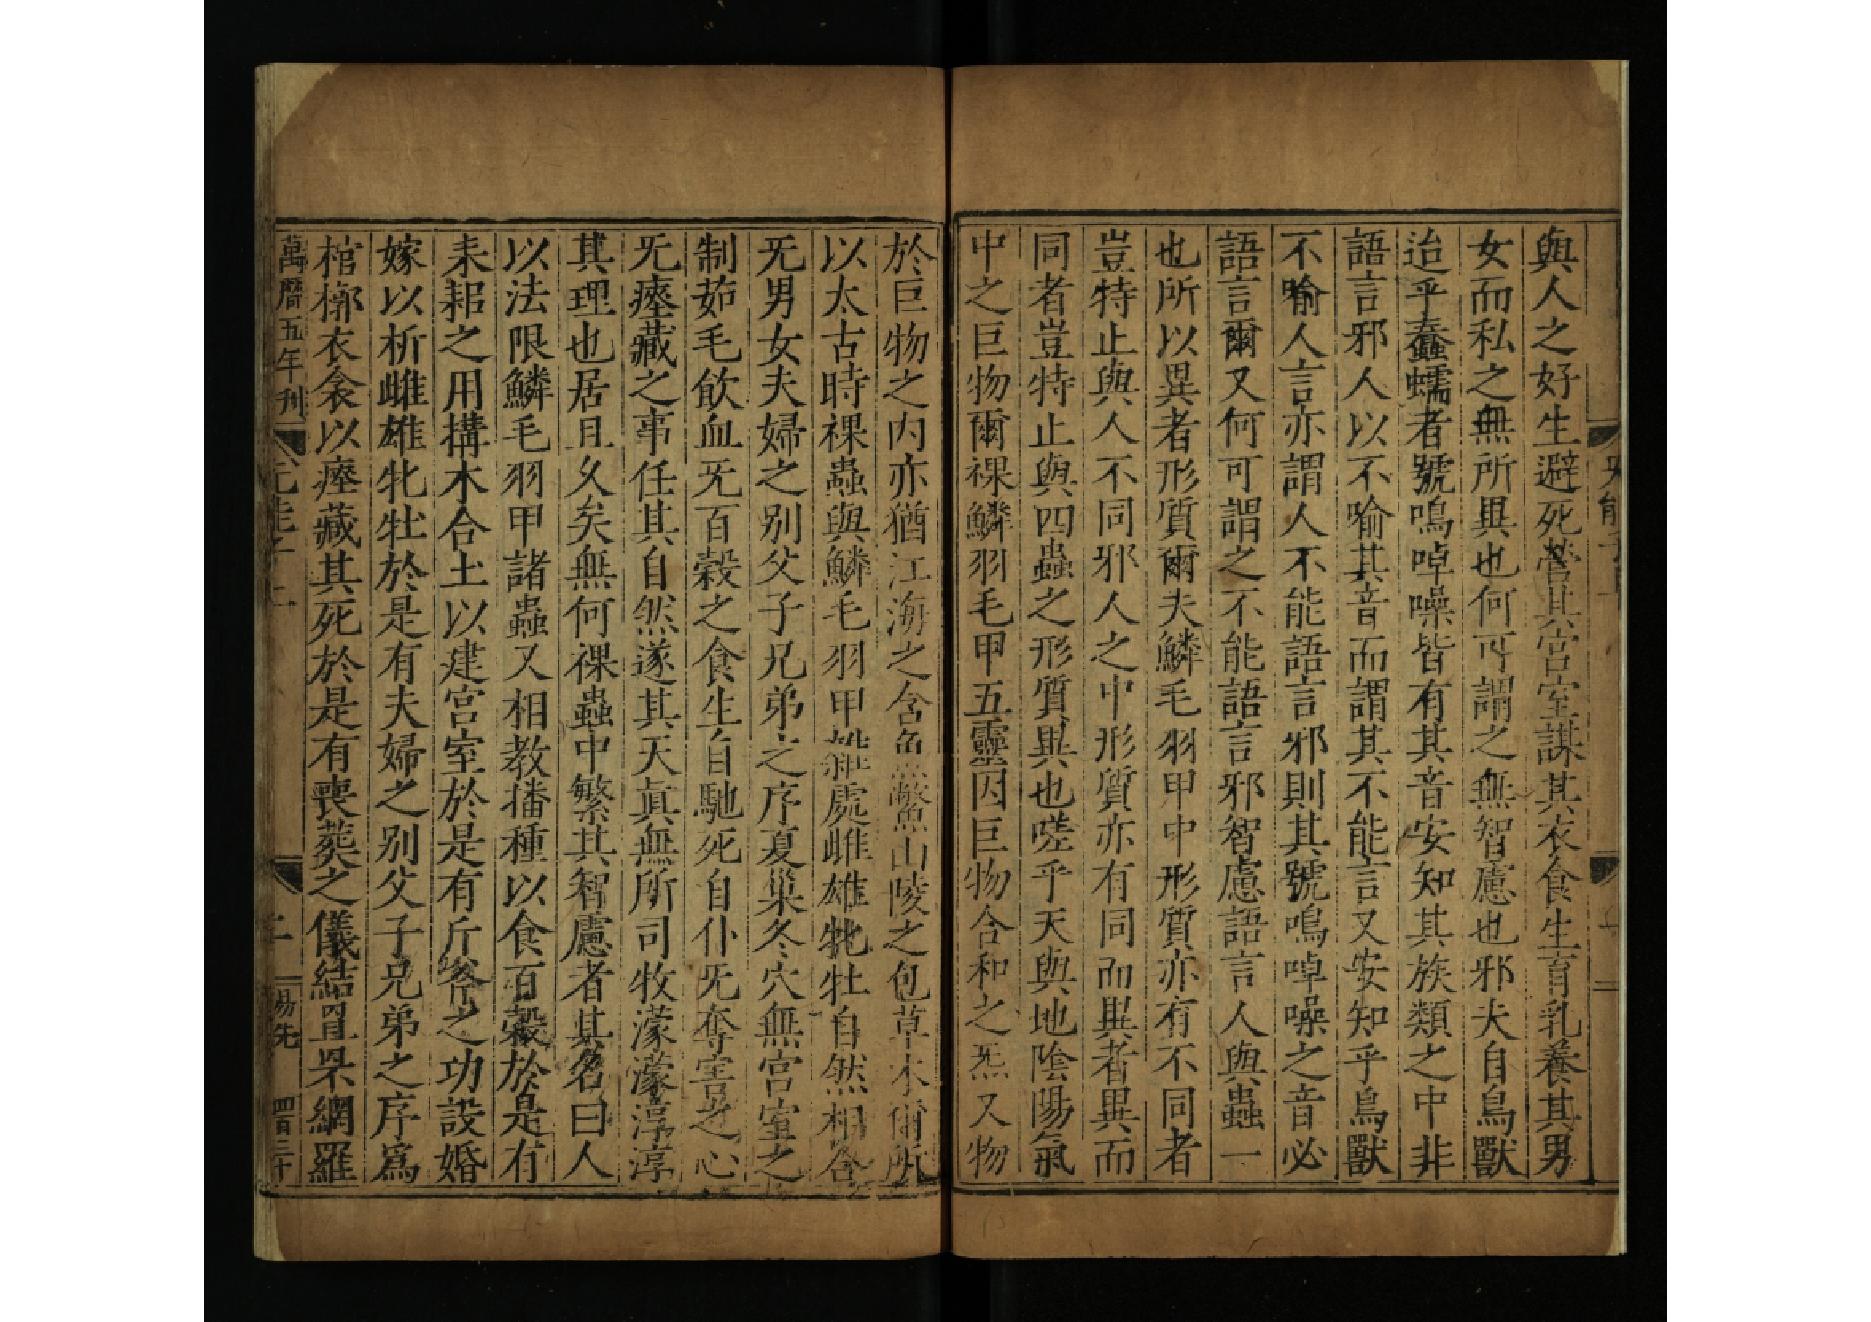 與人之好生避死營其宮室謀其衣食生育乳養其男
女而私之無所異也何可謂之無智慮也邪夫自鳥獸
迨乎蠢蠕者號鳴啅噪皆有其音安知其族類之中非
語言邪人以不喻其音而謂其不能言又安知乎鳥獸
不喻人言亦謂人不能語言邪則其號鳴啅噪之音必
語言爾又何可謂之不能語言邪智慮語言人與蟲一
也所以異者形質爾夫鱗毛羽甲中形質亦有不同者
豈特止與人不同邪人之中形質亦有同而異者異而
同者豈特止與四蟲之形質異也嗟乎天與地陰陽氣
中之巨物爾裸鱗羽毛甲五靈因巨物合和之炁又物
於巨物之內亦猶江海之含魚鱉山陵之包草木爾所
以太古時裸蟲與鱗毛羽甲雜處雌雄牝牡自然相合
无男女夫婦之别父子兄弟之序夏巢冬穴無宮室之
制茹毛飲血无百穀之食生自馳死自仆无奪害之心
无瘞藏之事任其自然遂其天真無所司牧濛濛淳淳
其理也居且久矣無何裸蟲中繁其智慮者其名曰人
以法限鱗毛羽甲諸蟲又相教播種以食百穀於是有
耒耜之用搆木合土以建宮室於是有斤斧之功設婚
嫁以析雌雄牝牡於是有夫婦之别父子兄弟之序爲
棺槨衣衾以瘞藏其死於是有喪葬之儀結罝罘網羅
萬曆五年刊
二
易先 四百三十